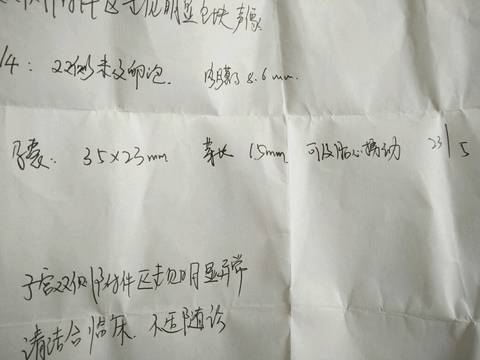 附件区未见明显包块声像
/4: 双侧未及卵泡. 内膜 8.6mm.
孕囊: 35×23mm 芽长 15mm 可及胎心搏动 23/5
子宫双侧附件区未见明显异常
请结合临床. 不适随诊